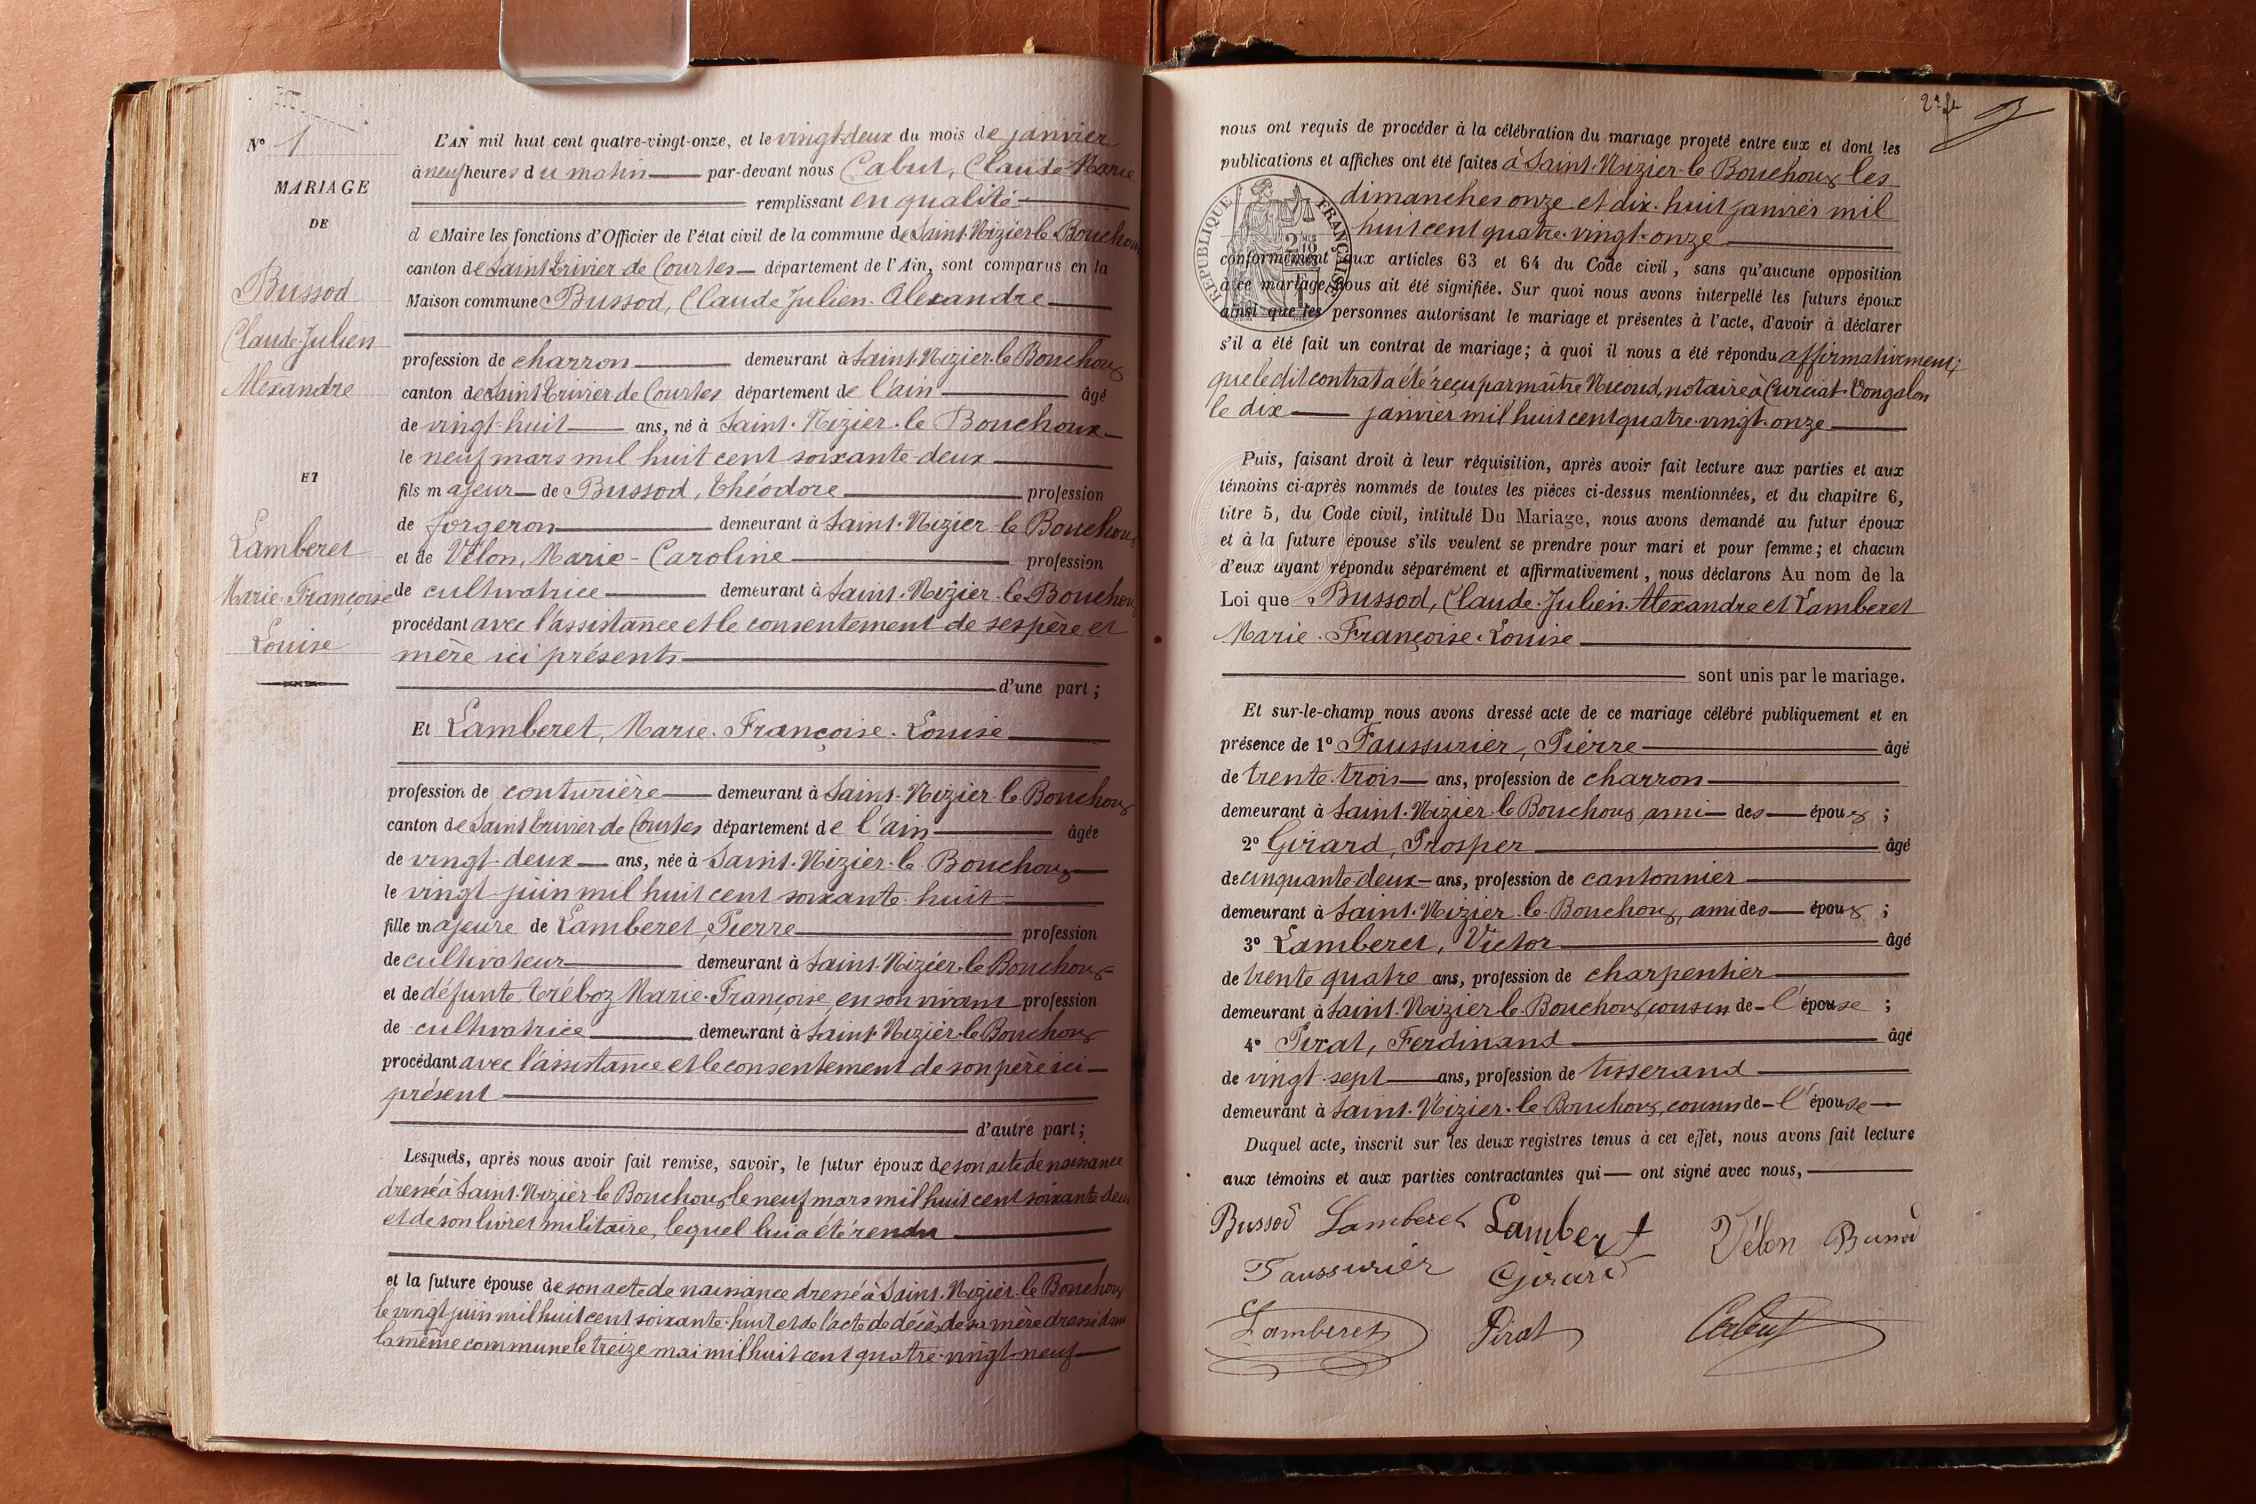 N° 1
MARIAGE
DE
Bussod
Claude Julien
Alexandre
ET
Lamberet
Marie-Françoise
Louise
L'AN mil huit cent quatre-vingt-onze, et le vingt-deux du mois de janvier
à neuf heures du matin par-devant nous Cabut, Claude Marie
remplissant en qualité
de Maire les fonctions d'Officier de l'état civil de la commune de Saint-Nizier-le-Bouchoux
canton de Saint-Trivier de Courtes département de l'Ain, sont comparus en la
Maison commune Bussod, Claude Julien Alexandre
profession de charron demeurant à Saint-Nizier-le Bouchoux
canton de Saint Trivier de Courtes département de l'ain âgé
de vingt-huit ans, né à Saint-Nizier-le Bouchoux
le neuf mars mil huit cent soixante deux
fils majeur de Bussod, Théodore profession
de forgeron demeurant à Saint-Nizier-le Bouchoux
et de Vélon, Marie-Caroline profession
de cultivatrice demeurant à Saint-Nizier-le Bouchoux
procédant avec l'assistance et le consentement de ses père et
mère ici présents
d'une part;
Et Lamberet, Marie-Françoise-Louise
profession de couturière demeurant à Saint-Nizier-le Bouchoux
canton de Saint Trivier de Courtes département de l'ain âgée
de vingt-deux ans, née à Saint-Nizier-le Bouchoux
le vingt juin mil huit cent soixante-huit
fille majeure de Lamberet, Pierre profession
de cultivateur demeurant à Saint-Nizier-le Bouchoux
et de défunte Tréboz Marie-Françoise, en son vivant profession
de cultivatrice demeurant à Saint-Nizier-le Bouchoux
procédant avec l'assistance et le consentement de son père ici
présent
d'autre part;
Lesquels, après nous avoir fait remise, savoir, le futur époux de son acte de naissance
dressé à Saint-Nizier-le Bouchoux le neuf mars mil huit cent soixante deux
et de son livret militaire, lequel lui a été rendu
et la future épouse de son acte de naissance dressé à Saint-Nizier-le Bouchoux
le vingt juin mil huit cent soixante-huit et de l'acte de décès de sa mère dressé dans
la même commune le treize mai mil huit cent quatre-vingt-neuf
nous ont requis de procéder à la célébration du mariage projeté entre eux et dont les
publications et affiches ont été faites à Saint-Nizier-le Bouchoux les
dimanches onze et dix-huit janvier mil
huit cent quatre-vingt-onze
RÉPUBLIQUE FRANÇAISE
conformément aux articles 63 et 64 du Code civil, sans qu'aucune opposition
à ce mariage nous ait été signifiée. Sur quoi nous avons interpellé les futurs époux
ainsi que les personnes autorisant le mariage et présentes à l'acte, d'avoir à déclarer
s'il a été fait un contrat de mariage; à quoi il nous a été répondu affirmativement;
que le dit contrat a été reçu par maître Nicoud, notaire à Curciat-Dongalon
le dix janvier mil huit cent quatre-vingt-onze
Puis, faisant droit à leur réquisition, après avoir fait lecture aux parties et aux
témoins ci-après nommés de toutes les pièces ci-dessus mentionnées, et du chapitre 6,
titre 5, du Code civil, intitulé Du Mariage, nous avons demandé au futur époux
et à la future épouse s'ils veulent se prendre pour mari et pour femme; et chacun
d'eux ayant répondu séparément et affirmativement, nous déclarons Au nom de la
Loi que Bussod, Claude-Julien-Alexandre et Lamberet
Marie-Françoise-Louise
sont unis par le mariage.
Et sur-le-champ nous avons dressé acte de ce mariage célébré publiquement et en
présence de 1° Faussurier, Pierre âgé
de trente-trois ans, profession de charron
demeurant à Saint-Nizier-le Bouchoux ami des époux ;
2° Girard, Prosper âgé
de cinquante deux ans, profession de cantonnier
demeurant à Saint-Nizier-le Bouchoux, ami des époux ;
3° Lamberet, Victor âgé
de trente quatre ans, profession de charpentier
demeurant à Saint-Nizier-le Bouchoux cousin de l'épouse ;
4° Pirat, Ferdinand âgé
de vingt-sept ans, profession de tisserand
demeurant à Saint-Nizier-le Bouchoux, cousin de l'épouse
Duquel acte, inscrit sur les deux registres tenus à cet effet, nous avons fait lecture
aux témoins et aux parties contractantes qui ont signé avec nous,
Bussod Lamberet Lamberet Vélon Bussod
Faussurier Girard
Lamberet Pirat Cabut